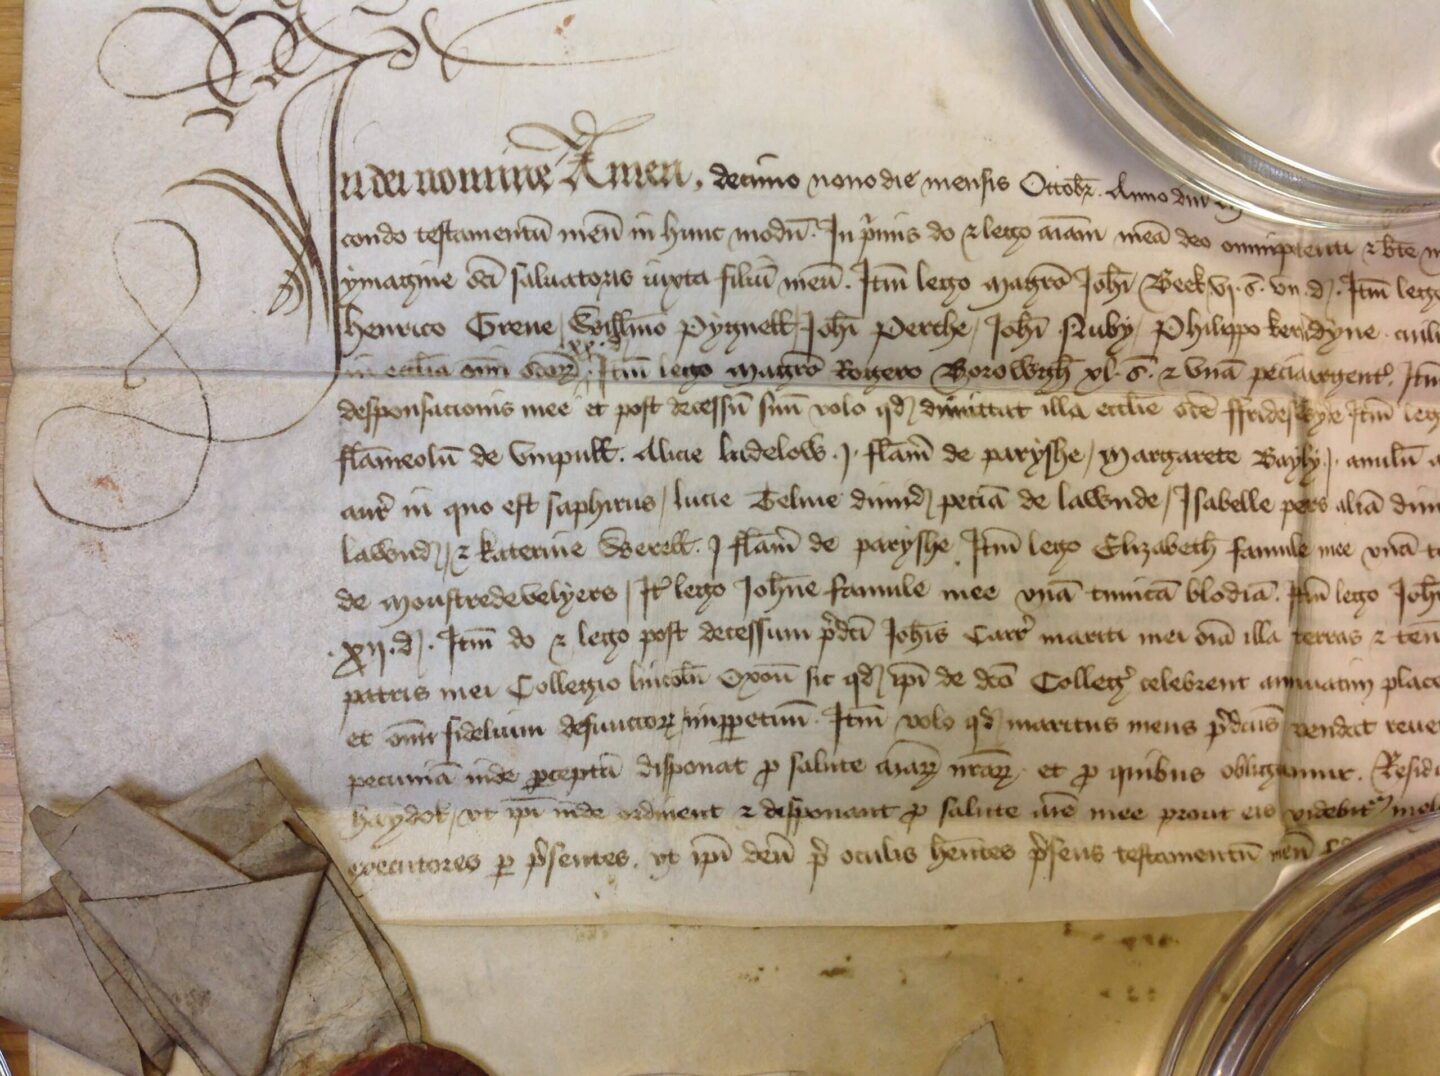 In dei nomine Amen, decimo nono die mensis Octobr. Anno dni
condo testamentū meū in hunc modū. In p̄mis do & lego aīam meā deo omnipotenti & bte
ymagine sc̄i saluatoris iuxta filiū meū. Itm̄ lego Magrō Joh̄i Beek vj.s. viij.d. Itm̄ lego
henrico Grene, Willm̄o Pygnell, Joh̄i Perche, Joh̄i Nuby, Philippo kerdyne
in eccl̄ia om̄i sc̄oꝝ xx.d. Itm̄ lego Magrō Rogero Borowgh̄ xl.s. & vnā peciā argent. Itm̄
desponsacionis mee et post decessū suū volo qd dimittat illa eccl̄ie sc̄e ffrideswyde Itm̄ leg
flāmeolū de vmpull. Alicie Ludelow .j. flām̄ de paryshe, Margarete Bayly .j. anulū
aur̄ in quo est saphirus, Lucie Telme dimid peciā de lawnde, Isabelle pers aliā dim
lawnd, & Katerine Werell .j. flām̄ de paryshe. Itm̄ lego Elizabeth̄ famule mee vnā
de Moustredevelyers, It̄ lego Joh̄ne famule mee vnā tunicā blodiā. Itm̄ lego Joh̄
.xij.d. Itm̄ do & lego post decessum p̄dc̄i Joh̄is Carr̄ mariti mei oīa illa terras & ten̄
patris mei Collegio lincoln̄ Oxon̄ sic qd ip̄i de dc̄o Colleḡ celebrent annuatim place
et om̄i fidelium defunctoꝝ imꝑpetuū. Itm̄ volo qd maritus meus p̄dc̄us vendat reue
pecuniā inde ꝑceptā disponat ꝓ salute aīaꝝ nr̄aꝝ et ꝓ quibus obligamur. Residu
haydok, vt ip̄i inde ordinent & disponant ꝓ salute aīe mee prout eis videbit̄ mel
executores ꝑ p̄sentes, vt ip̄i deū p̄ oculis hentes p̄sens testamentū meū